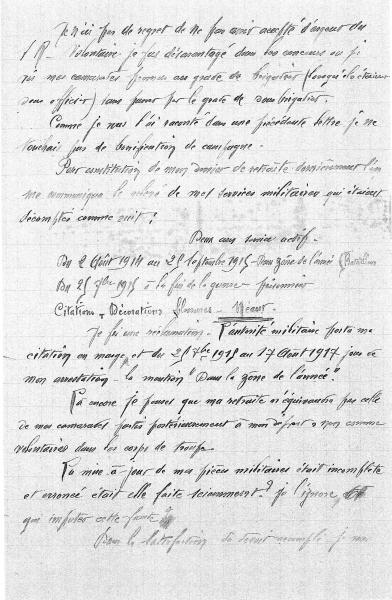 Je n'ai pas de regret de ne pas avoir accepté d'argent du
S R. Volontaire je fus désavantagé dans les concours où je
vis mes camarades promus au grade de brigadier (lorsqu'ils étaient
sous officier) sans passer par le grade de sous brigadier.
Comme je vous l'ai raconté dans une précédente lettre je ne
touchais pas de bonification de campagne.
Pour constitution de mon dossier de retraite dernièrement l'on
me communiqua le relevé de mes services militaires qui étaient
décomptés comme suit:
Deux ans service actif.
Du 2 Août 1914 au 25 Septembre 1915 - Dans zône de l'armée
Du 25 7bre 1915 à la fin de la guerre prisonnier
Citations & Décorations Néant
Je fis une réclamation. L'autorité militaire porta ma
citation en marge et du 25 7bre 1915 au 17 Août 1917 jour de
mon arrestation - la mention "Dans la zône de l'armée".
Là encore je pense que ma retraite n'équivaudra pas celle
de mes camarades partis postérieurement à mon départ & non comme
volontaires dans les corps de troupe.
La mise à jour de mes pièces militaires était incomplète
et erronée était elle faite sciemment? je l'ignore,
que imputer cette faute?
Dans la satisfaction du devoir accompli je